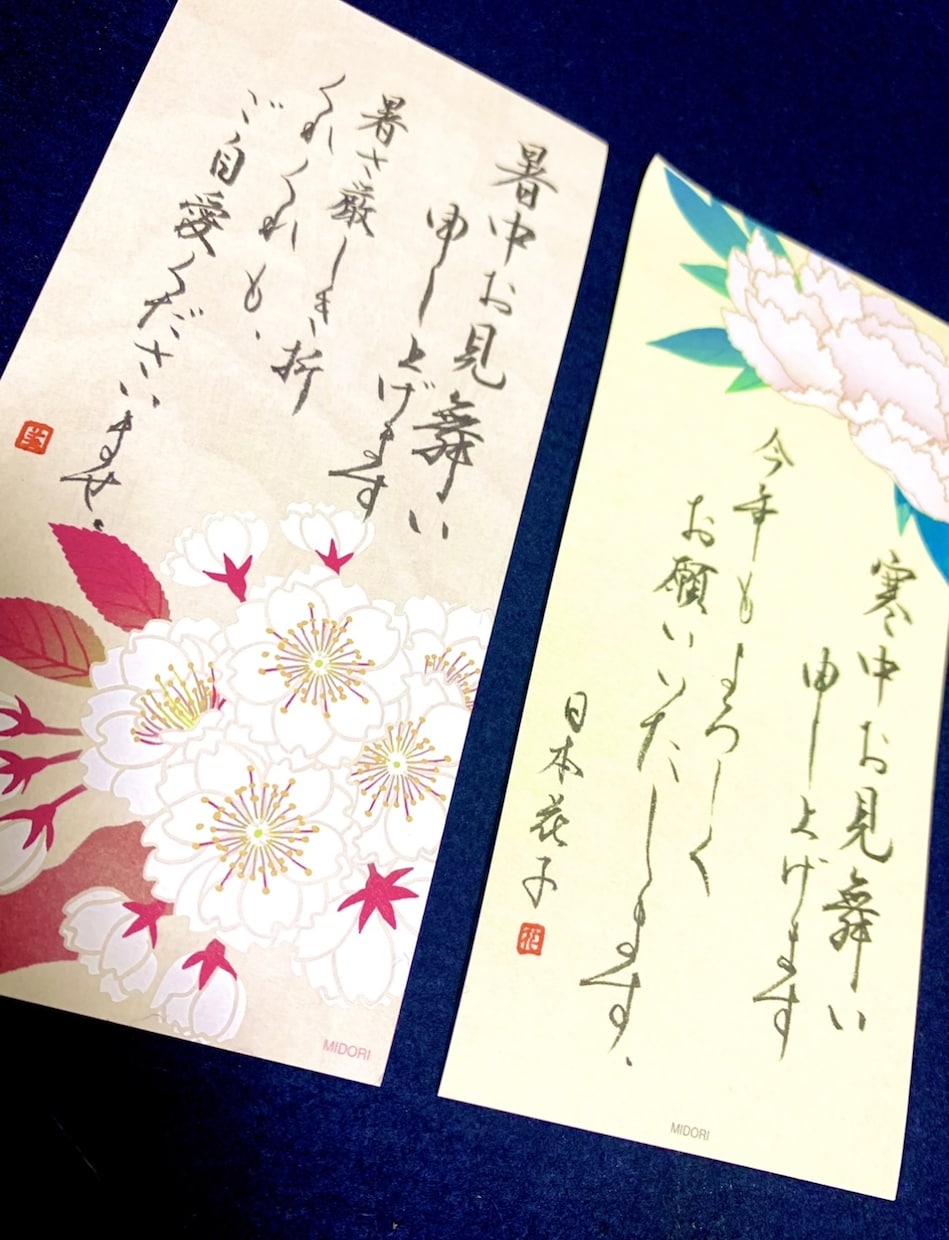 暑中お見舞い
申し上げます
暑さ厳しき折
くれぐれも、
ご自愛くださいませ。
MIDORI
寒中お見舞い
申し上げます
今年もよろしく
お願いいたします。
日本花子
花
MIDORI